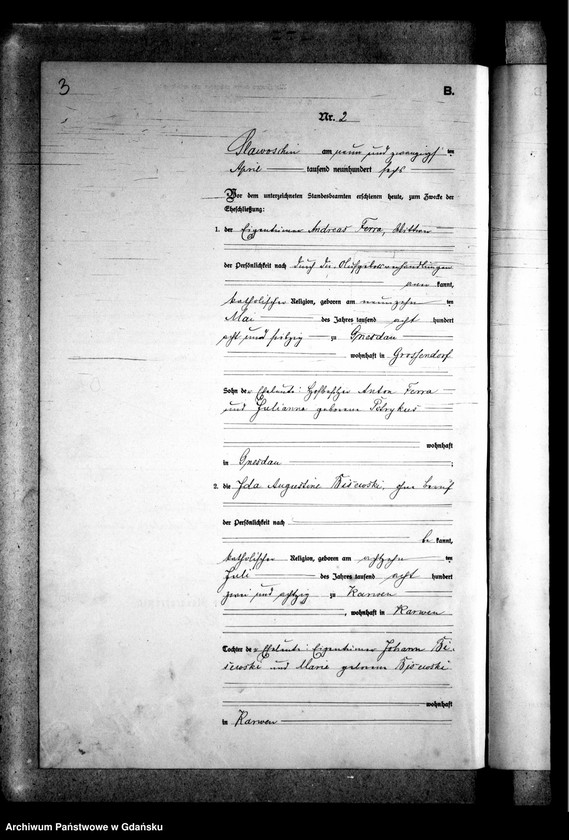 3
B.
Nr. 2
Slawoschin am neun und zwanzigsten
April tausend neunhundert sechs
Vor dem unterzeichneten Standesbeamten erschienen heute, zum Zwecke der
Eheschließung:
1. der Eigentümer Andreas Ferra, Wittwer
der Persönlichkeit nach durch die Aufgebotsverhandlungen
anerkannt,
katholischer Religion, geboren am neunzehnten
Mai des Jahres tausend acht hundert
acht und sechzig zu Gnesdau
, wohnhaft in Grossendorf
Sohn der Eheleute: Hofbesitzer Anton Ferra
und Julianna geborene Petrykus
wohnhaft
in Gnesdau ;
2. die Ida Augustine Bisewski, ohne Beruf
der Persönlichkeit nach
bekannt,
katholischer Religion, geboren am achtzehnten
Juli des Jahres tausend acht hundert
zwei und achtzig zu Karwen
, wohnhaft in Karwen
Tochter der Eheleute: Eigentümer Johann Bi-
sewski und Marie geborene Bisewski
wohnhaft
in Karwen
Archiwum Państwowe w Gdańsku